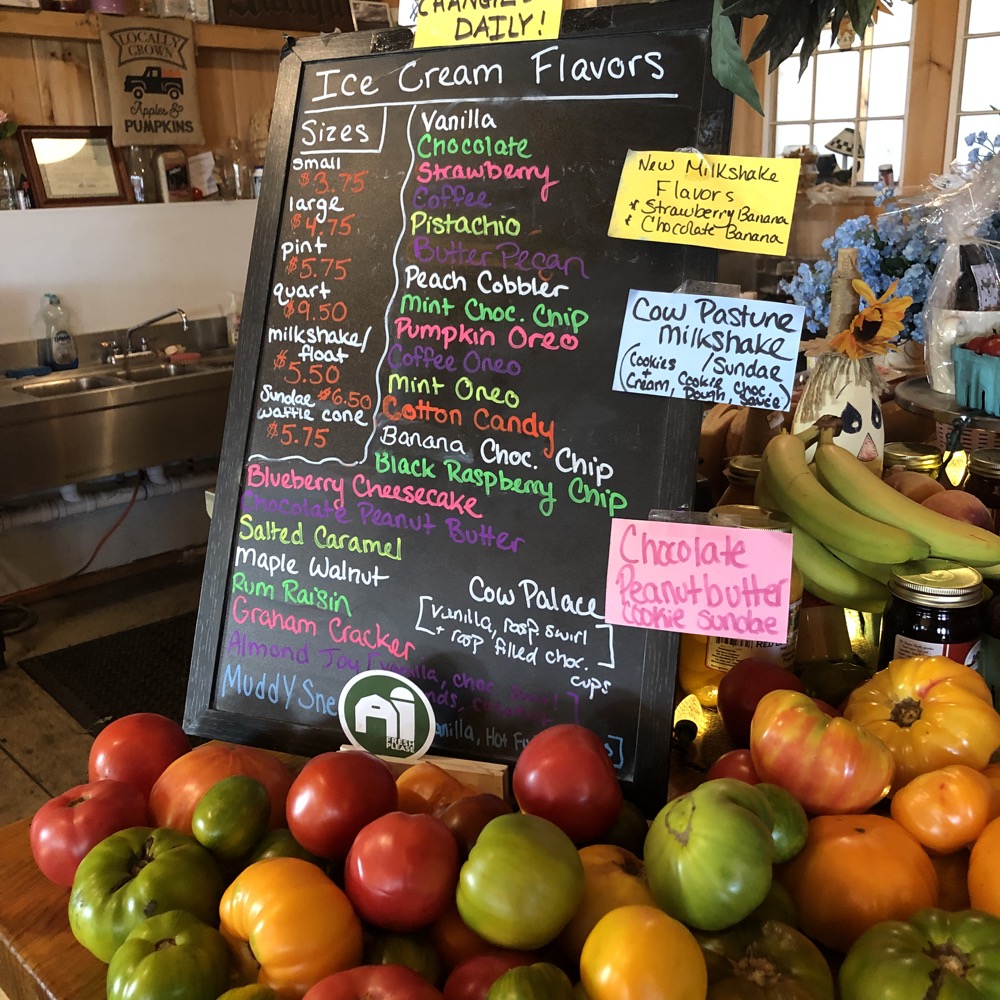 CHANGED
DAILY!
LOCALLY
GROWN
Apples &
PUMPKINS
Ice Cream Flavors
Sizes
small
$3.75
large
$4.75
pint
$5.75
quart
$9.50
milkshake/
float
$5.50
Sundae $6.50
waffle cone
$5.75
Vanilla
Chocolate
Strawberry
Coffee
Pistachio
Butter Pecan
Peach Cobbler
Mint Choc. Chip
Pumpkin Oreo
Coffee Oreo
Mint Oreo
Cotton Candy
Banana Choc. Chip
Black Raspberry Chip
Blueberry Cheesecake
Chocolate Peanut Butter
Salted Caramel
Maple Walnut
Rum Raisin
Graham Cracker
Almond Joy [vanilla, choc.
MuddY
vanilla, Hot
Cow Palace
[vanilla, rasp swirl
+ rasp filled choc.]
cups
FRESH
PLEASE
New Milkshake
Flavors
* Strawberry Banana
* Chocolate Banana
Cow Pasture
milkshake
/Sundae
(Cookies +
Cream, Cookie Dough, Choc. Sauce)
Chocolate
Peanutbutter
cookie sundae